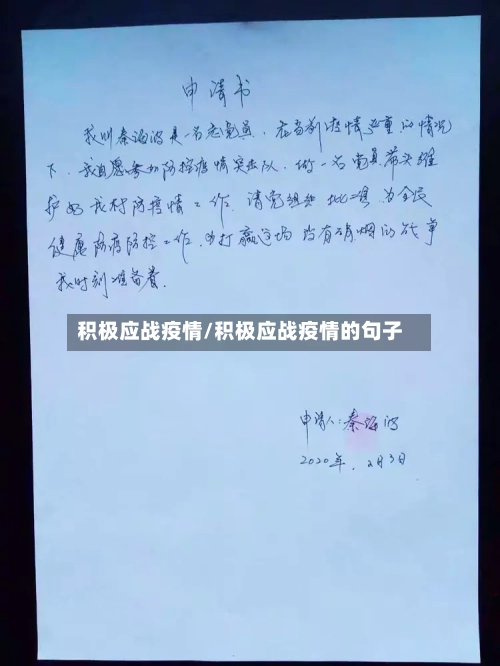 申请书
我叫秦海波是一名老党员，在当前疫情严重的情况
下，我自愿参加防控疫情突击队，做一名党员带头维
护好我村防疫情工作，请党组织批准，为全民
健康防疫防控工作，为打赢这场没有硝烟的战争
我时刻准备着。
积极应战疫情/积极应战疫情的句子
申请人：秦海波
2020年，2月3日